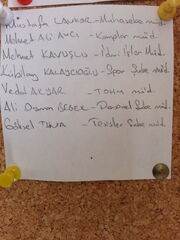 Mustafa LAVKOR - Muhasebe müd.
Mehmet Ali AVCI - Kamplar müd.
Mehmet KAVUŞLU - İdari İşler Müd.
Kubilay KALAYCIOĞLU - Spor Şube müd.
Vedat AKYAR - TOHM müd.
Ali Osman BEBEK - Personel Şube müd.
Göksel TUNA - Tesisler Şube müd.